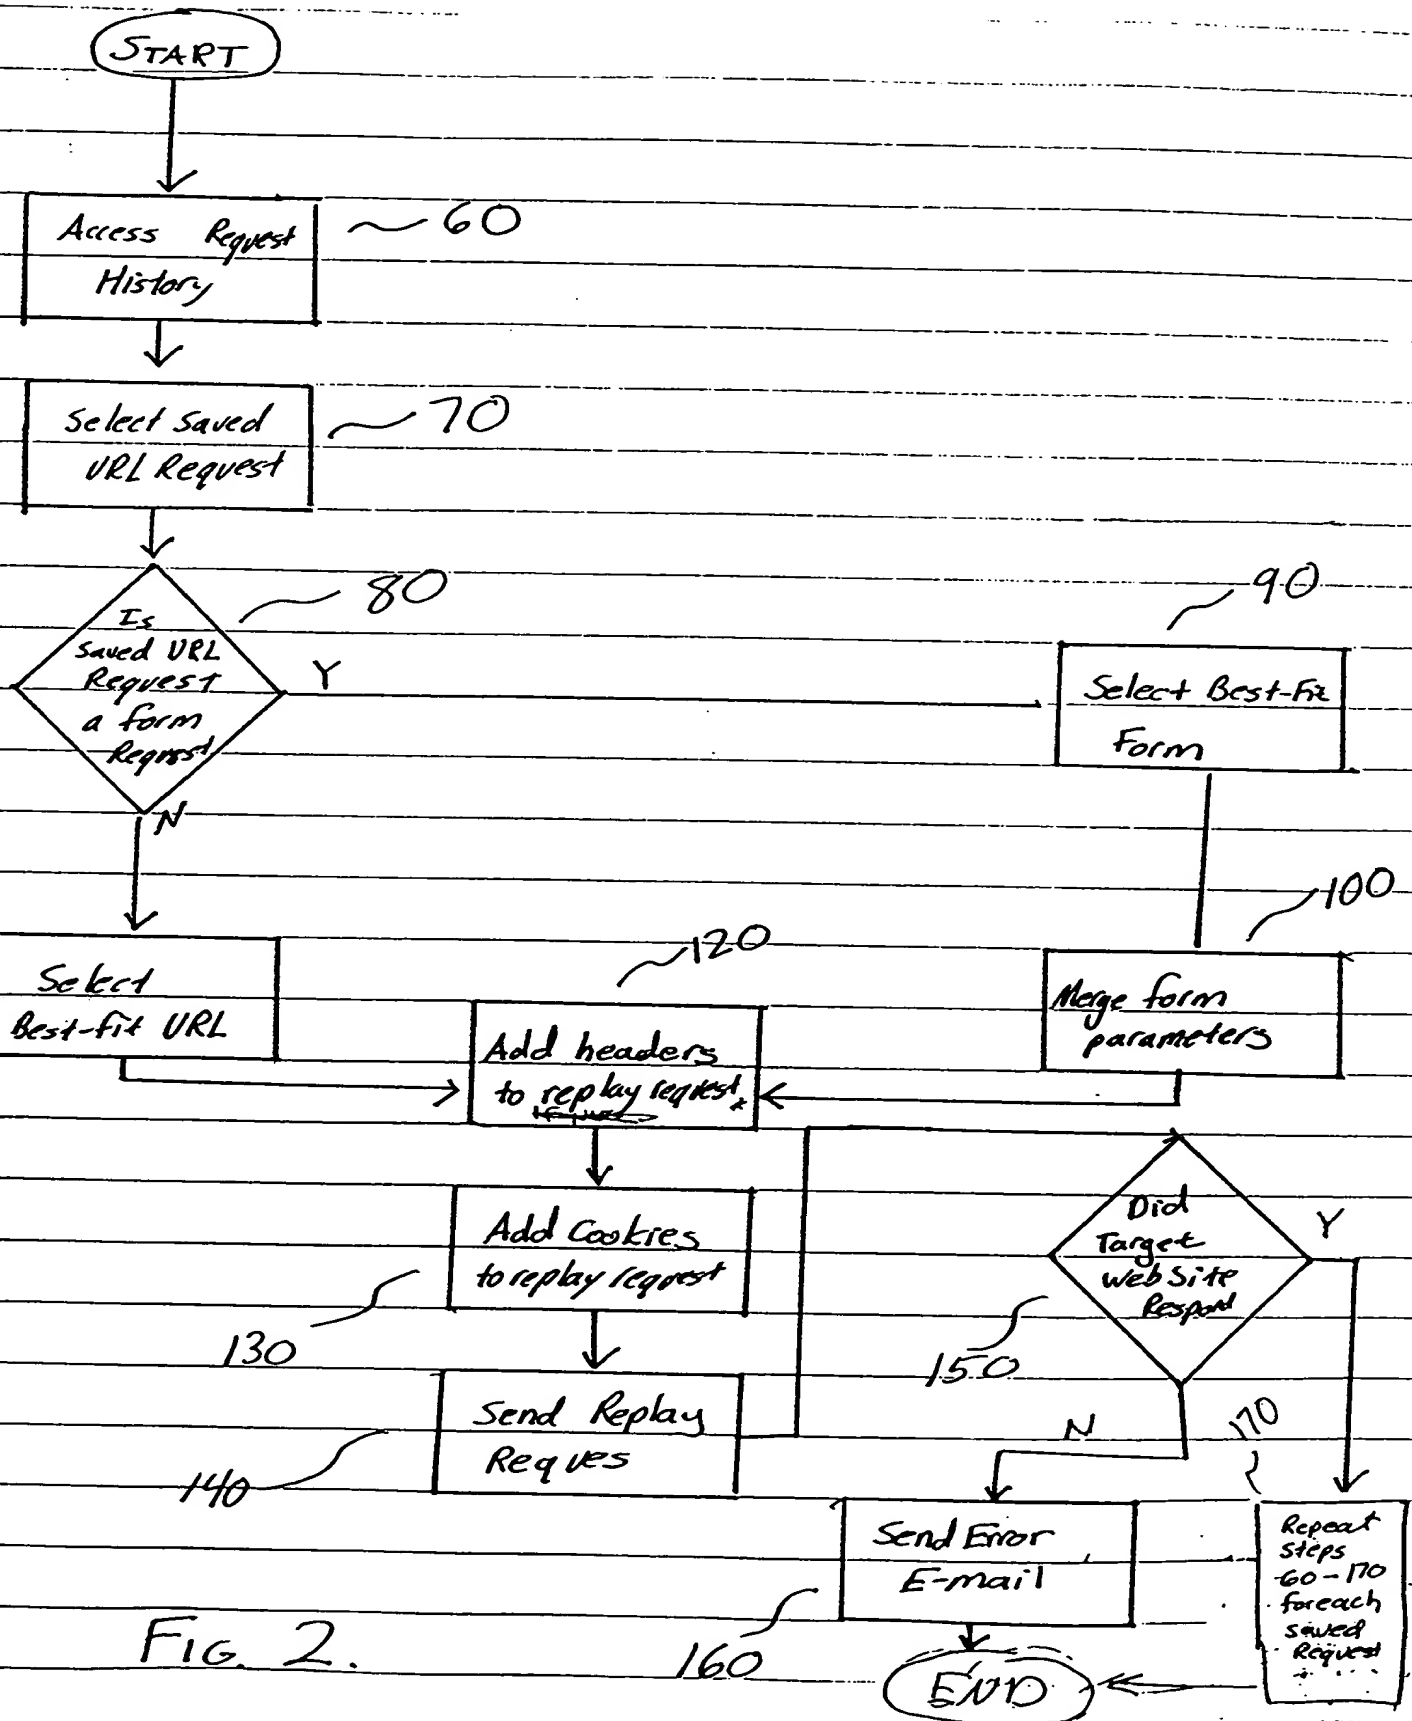 START
Access Request
History
60
Select Saved
URL Request
70
Is
Saved URL
Request
a form
Request
80
Y
N
90
Select Best-Fit
Form
100
Merge form
parameters
Select
Best-fit URL
120
Add headers
to replay request
Add Cookies
to replay request
130
Send Replay
Reques
140
Did
Target
Web Site
Respond
150
Y
N
170
Send Error
E-mail
160
Repeat
steps
60-170
foreach
saved
Request
END
FIG. 2.